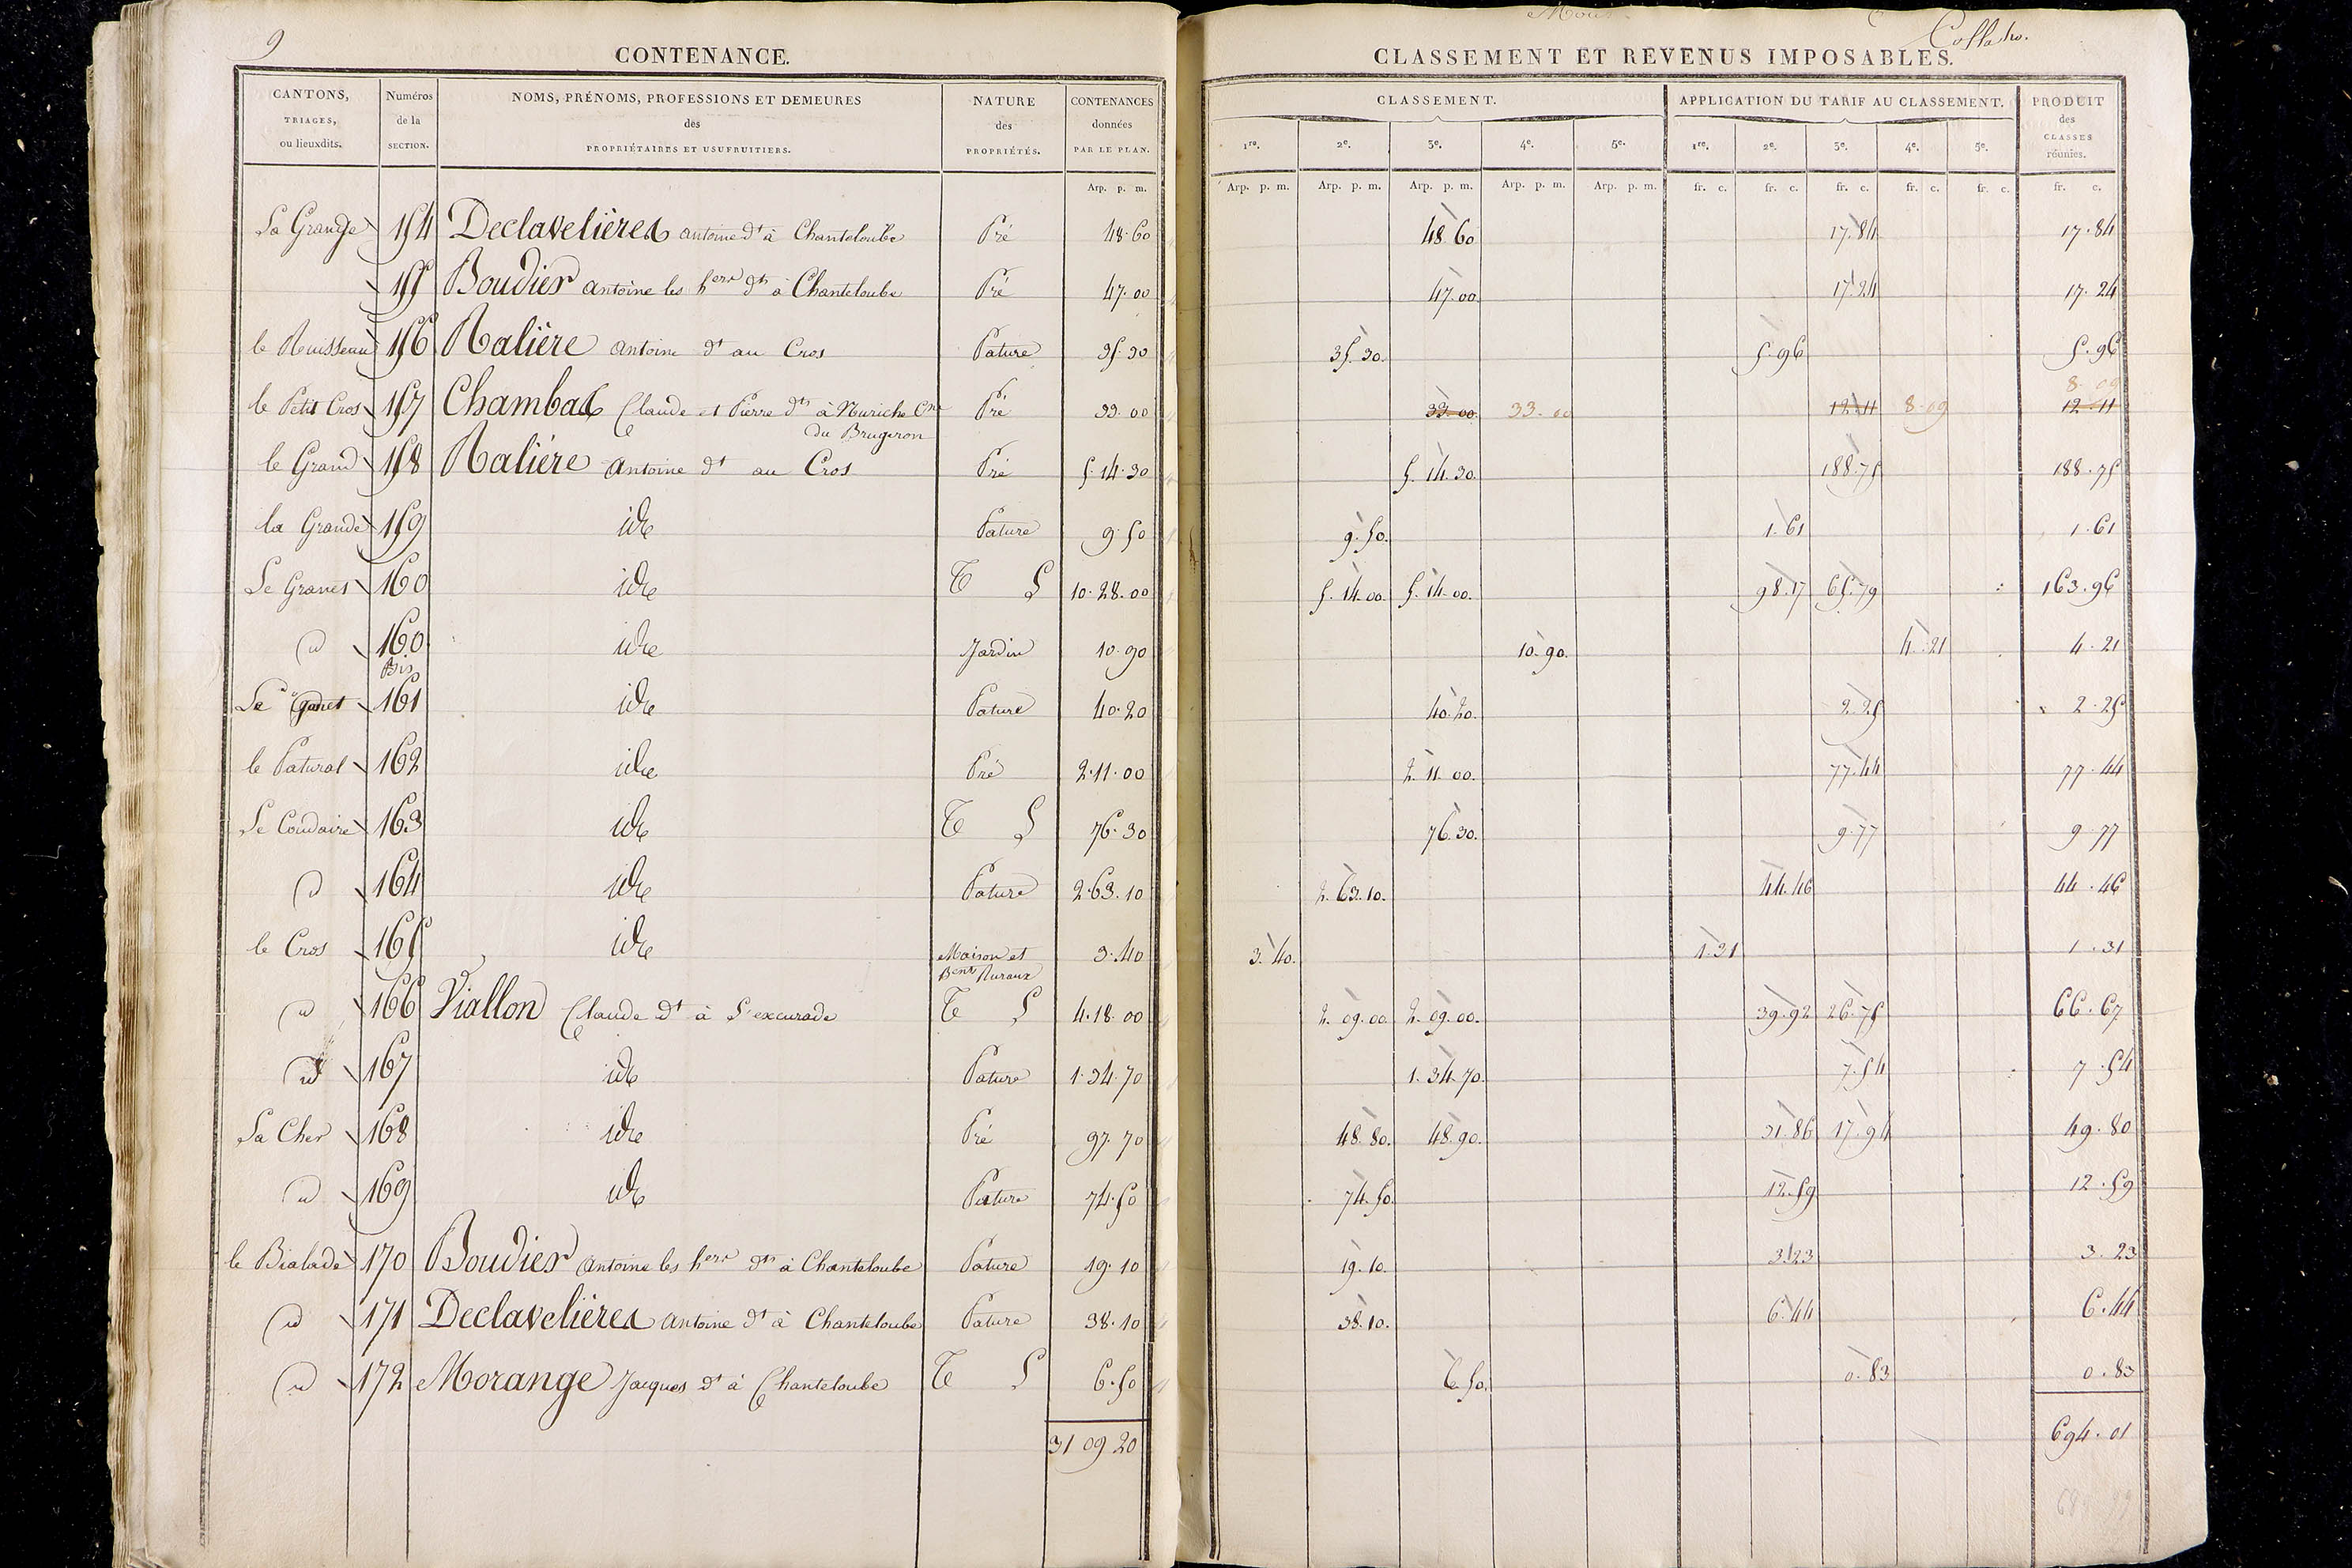 9
CONTENANCE.
CANTONS, TRIAGES, ou lieuxdits. | Numéros de la SECTION. | NOMS, PRÉNOMS, PROFESSIONS ET DEMEURES des PROPRIÉTAIRES ET USUFRUITIERS. | NATURE des PROPRIÉTÉS. | CONTENANCES données PAR LE PLAN.
Arp. p. m.
La Grange 154 Declavelières antoine dt à Chanteloube Pré 48.60
155 Boudier antoine les hers dts à Chanteloube Pré 47.00
le Ruisseau 156 Ralière antoine dt au Cros Pature 35.30
le Petit Cros 157 Chambas Claude et Pierre dts à Nuriche Cne Pré 33.00
du Brugeron
le Grand 158 Ralière antoine dt au Cros Pré 5.14.30
la Grande 159 ide Pature 9.50
Le Granet 160 ide T L 10.28.00
id 160 Bis ide Jardin 10.90
Le Granet 161 ide Pature 40.20
le Patural 162 ide Pré 2.11.00
Le Coudaire 163 ide T L 76.30
id 164 ide Pature 2.63.10
le Cros 165 ide Maison et Bent Ruraux 3.40
id 166 Viallon Claude dt à L'excurade T L 4.18.00
id 167 ide Pature 1.34.70
La Cher 168 ide Pré 97.70
id 169 ide Pature 74.50
le Bialade 170 Boudier antoine les hers dts à Chanteloube Pature 19.10
id 171 Declavelières antoine dt à Chanteloube Pature 38.10
id 172 Morange Jacques dt à Chanteloube T L 6.50
31 09 20
Collatio.
CLASSEMENT ET REVENUS IMPOSABLES.
CLASSEMENT. | APPLICATION DU TARIF AU CLASSEMENT. | PRODUIT des CLASSES réunies.
1re. 2e. 3e. 4e. 5e. 1re. 2e. 3e. 4e. 5e.
Arp. p. m. Arp. p. m. Arp. p. m. Arp. p. m. Arp. p. m. fr. c. fr. c. fr. c. fr. c. fr. c. fr. c.
48.60 17.84 17.84
47.00 17.24 17.24
35.30. 5.96 5.96
8.09
33.00 33.00 12.11 8.09 12.11
5.14.30. 188.75 188.75
9.50. 1.61 1.61
5.14.00. 5.14.00. 98.17 65.79 163.96
10.90. 4.21 4.21
40.20. 2.25 2.25
2.11.00. 77.44 77.44
76.30. 9.77 9.77
2.63.10. 44.46 44.46
3.40. 1.31 1.31
2.09.00. 2.09.00. 39.92 26.75 66.67
1.34.70. 7.54 7.54
48.80. 48.90. 31.86 17.94 49.80
74.50. 12.59 12.59
19.10. 3.23 3.23
38.10. 6.44 6.44
6.50. 0.83 0.83
694.01